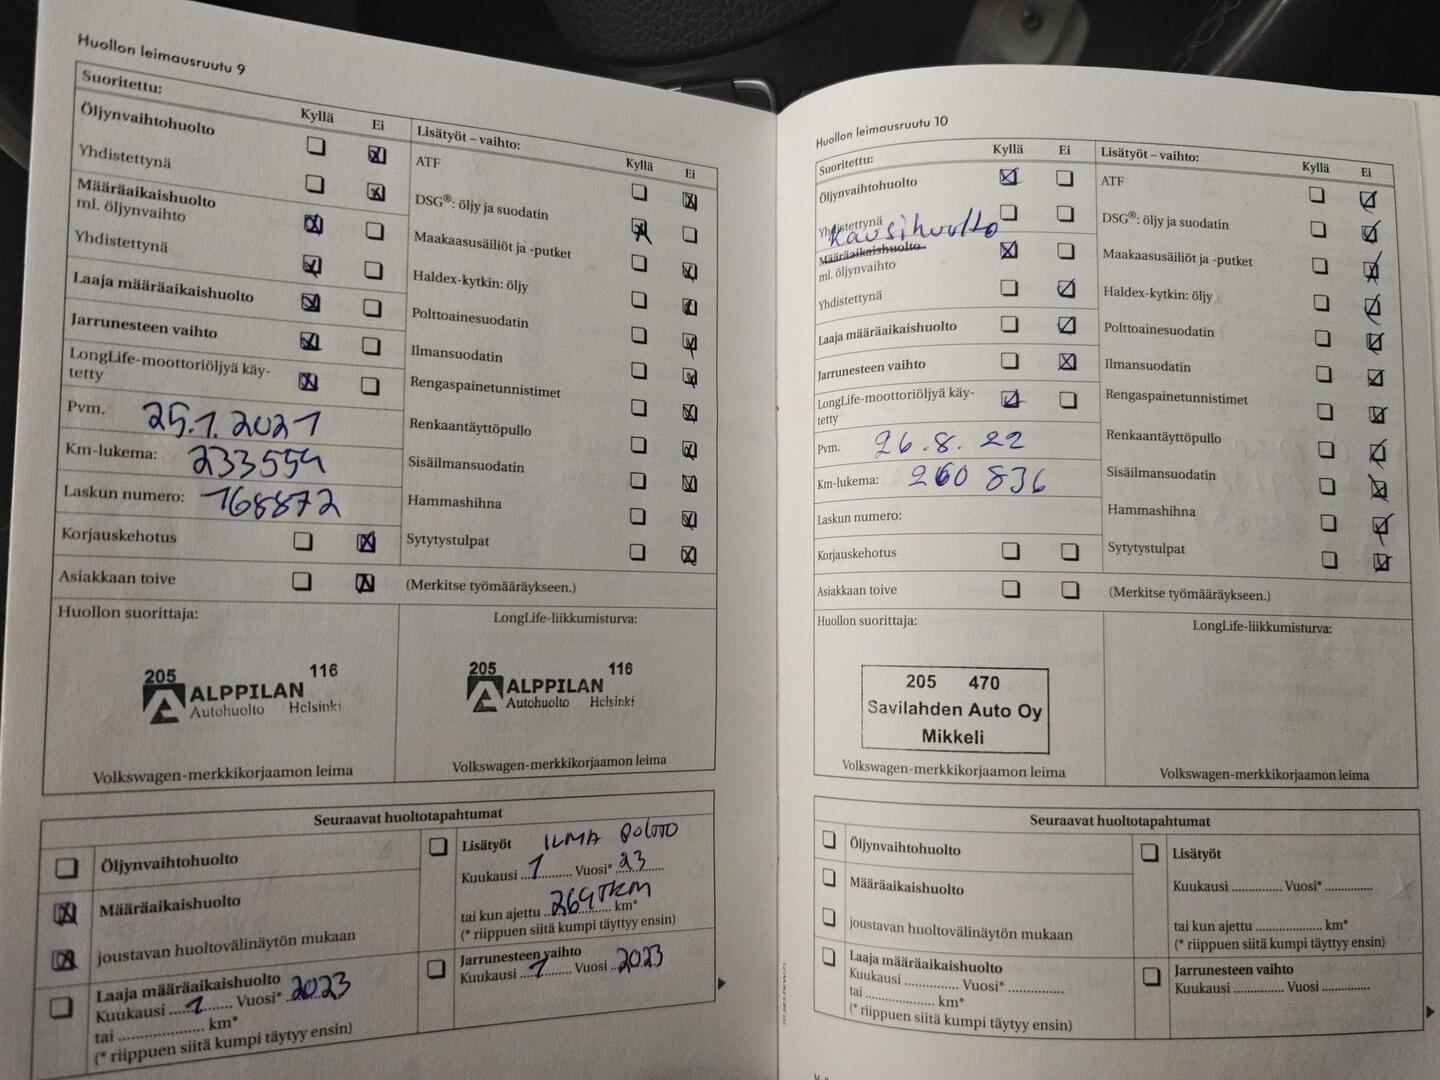 Huollon leimausruutu 9
Suoritettu:
Kyllä Ei
Öljynvaihtohuolto
Yhdistettynä
Määräaikaishuolto
ml. öljynvaihto
Yhdistettynä
Laaja määräaikaishuolto
Jarrunesteen vaihto
LongLife-moottoriöljyä käy-
tetty
Pvm. 25.1.2021
Km-lukema: 233554
Laskun numero: 168872
Korjauskehotus
Asiakkaan toive
Lisätyöt – vaihto:
Kyllä Ei
ATF
DSG®: öljy ja suodatin
Maakaasusäiliöt ja -putket
Haldex-kytkin: öljy
Polttoainesuodatin
Ilmansuodatin
Rengaspainetunnistimet
Renkaantäyttöpullo
Sisäilmansuodatin
Hammashihna
Sytytystulpat
(Merkitse työmääräykseen.)
Huollon suorittaja:
205 116
ALPPILAN
Autohuolto Helsinki
Volkswagen-merkkikorjaamon leima
LongLife-liikkumisturva:
205 116
ALPPILAN
Autohuolto Helsinki
Volkswagen-merkkikorjaamon leima
Seuraavat huoltotapahtumat
Öljynvaihtohuolto
Määräaikaishuolto
joustavan huoltovälinäytön mukaan
Laaja määräaikaishuolto
Kuukausi ...1........ Vuosi* 2023
tai ..................... km*
(* riippuen siitä kumpi täytyy ensin)
Lisätyöt ILMA POLTTO
Kuukausi ...1......... Vuosi* 23
tai kun ajettu ..264TKM.. km*
(* riippuen siitä kumpi täyttyy ensin)
Jarrunesteen vaihto
Kuukausi ...1......... Vuosi ..2023
Huollon leimausruutu 10
Suoritettu:
Kyllä Ei
Öljynvaihtohuolto
Yhdistettynä
Kausihuolto
Määräaikaishuolto
ml. öljynvaihto
Yhdistettynä
Laaja määräaikaishuolto
Jarrunesteen vaihto
LongLife-moottoriöljyä käy-
tetty
Pvm. 26.8.22
Km-lukema: 260 836
Laskun numero:
Korjauskehotus
Asiakkaan toive
Lisätyöt – vaihto:
Kyllä Ei
ATF
DSG®: öljy ja suodatin
Maakaasusäiliöt ja -putket
Haldex-kytkin: öljy
Polttoainesuodatin
Ilmansuodatin
Rengaspainetunnistimet
Renkaantäyttöpullo
Sisäilmansuodatin
Hammashihna
Sytytystulpat
(Merkitse työmääräykseen.)
Huollon suorittaja:
205 470
Savilahden Auto Oy
Mikkeli
Volkswagen-merkkikorjaamon leima
LongLife-liikkumisturva:
Volkswagen-merkkikorjaamon leima
Seuraavat huoltotapahtumat
Öljynvaihtohuolto
Määräaikaishuolto
joustavan huoltovälinäytön mukaan
Laaja määräaikaishuolto
Kuukausi .............. Vuosi* ..............
tai ..................... km*
(* riippuen siitä kumpi täytyy ensin)
Lisätyöt
Kuukausi .............. Vuosi* ..............
tai kun ajettu .................... km*
(* riippuen siitä kumpi täyttyy ensin)
Jarrunesteen vaihto
Kuukausi .............. Vuosi ..............